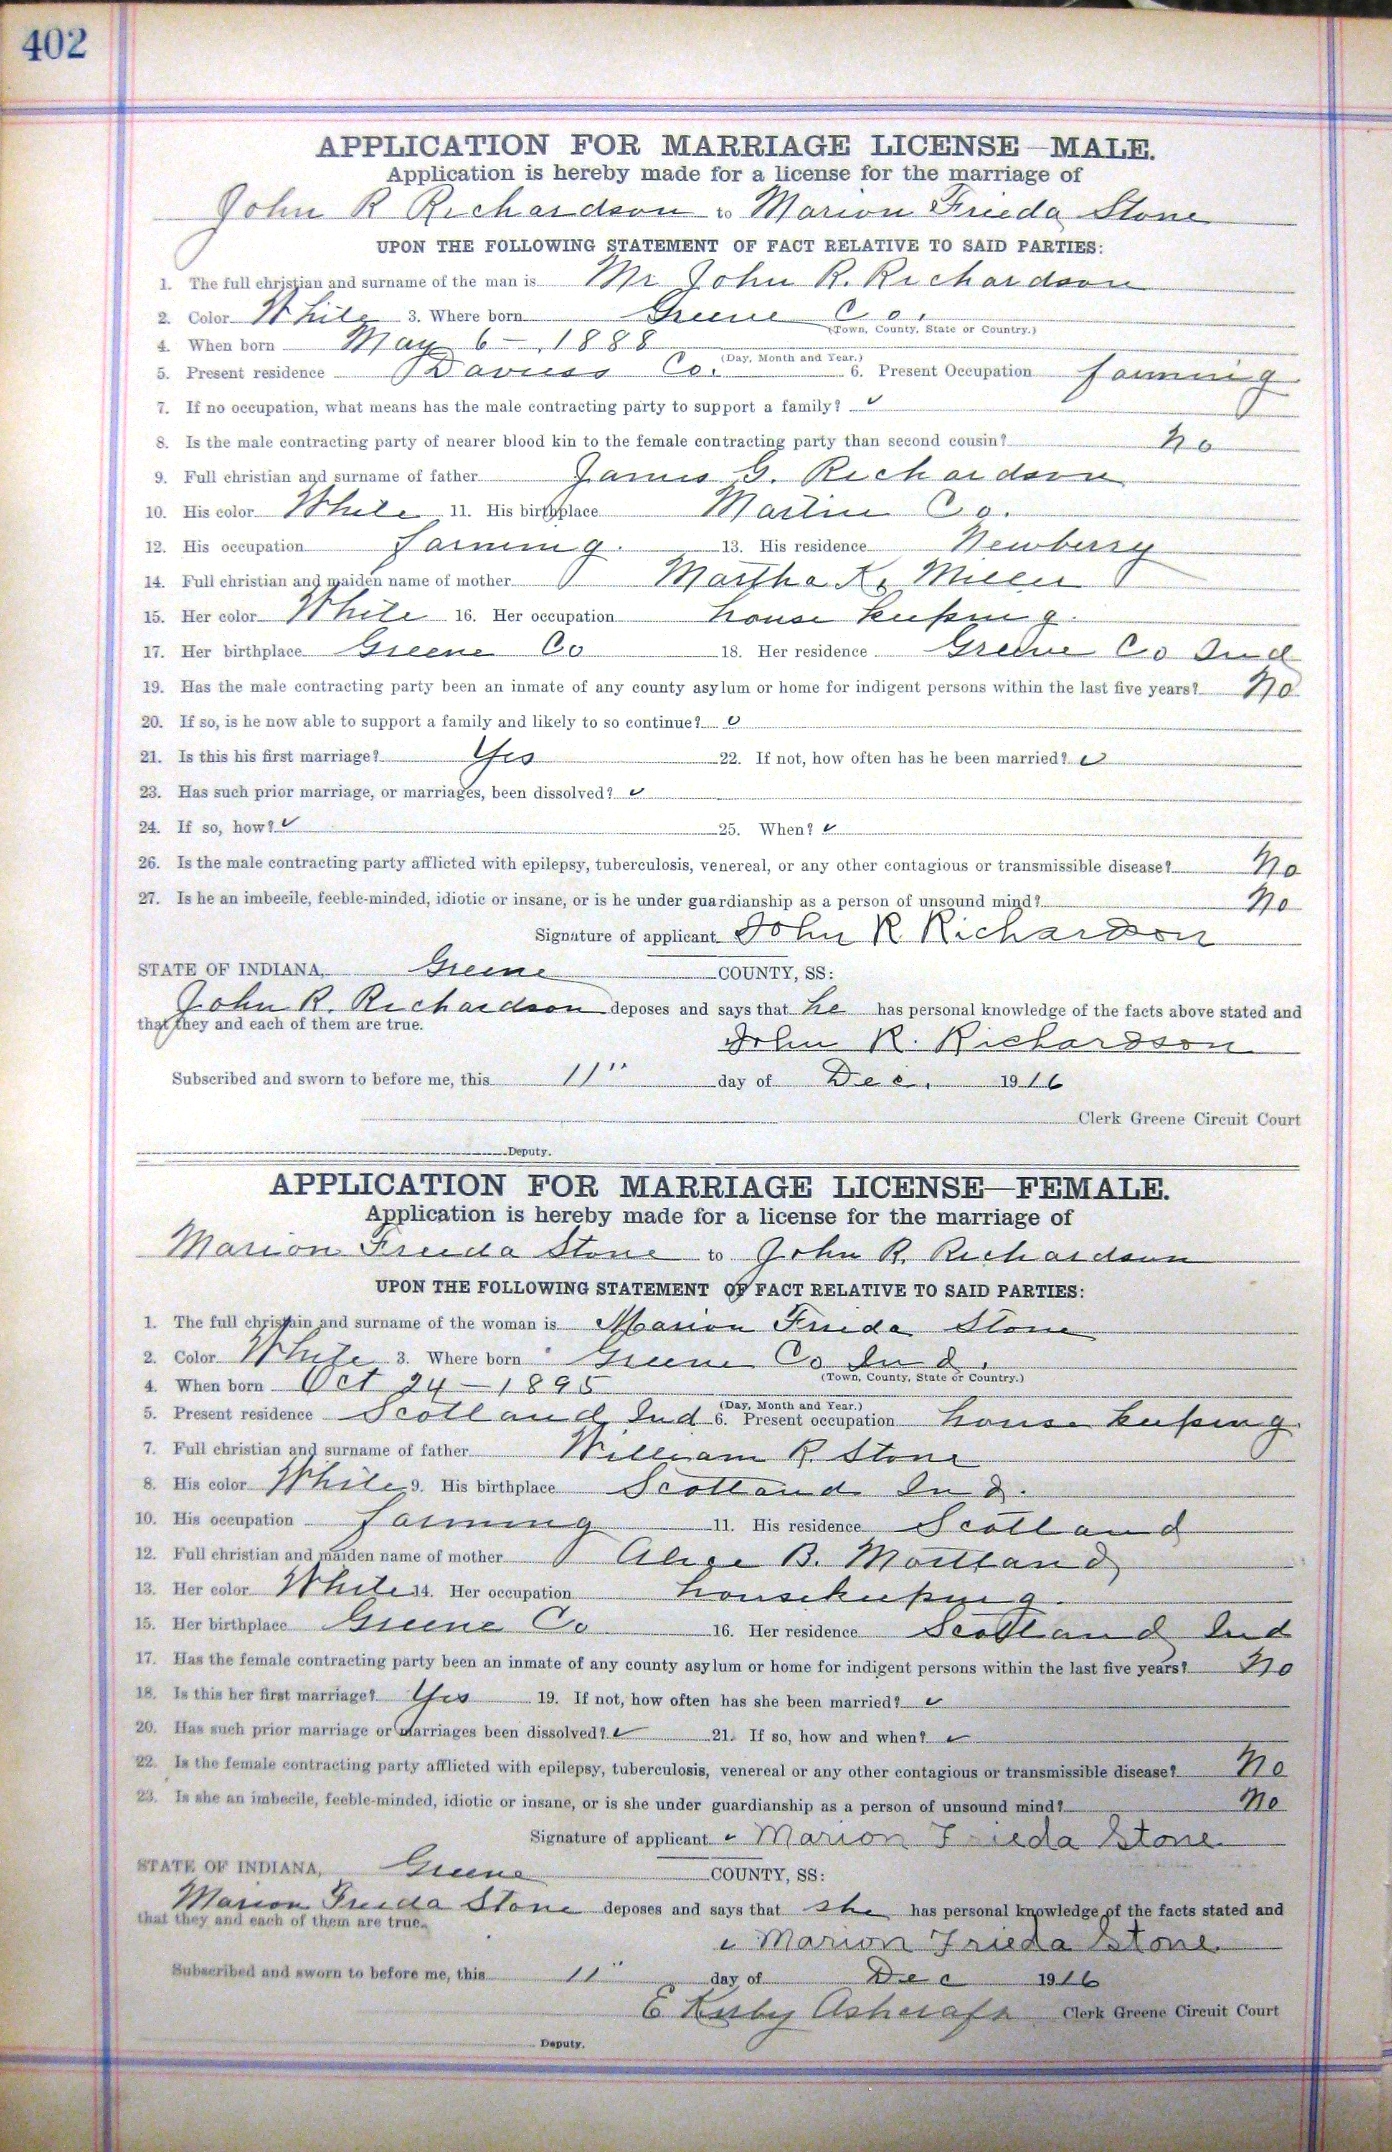 402
APPLICATION FOR MARRIAGE LICENSE—MALE.
Application is hereby made for a license for the marriage of
John R Richardson to Marion Frieda Stone
UPON THE FOLLOWING STATEMENT OF FACT RELATIVE TO SAID PARTIES:
1. The full christian and surname of the man is Mr John R. Richardson
2. Color White 3. Where born Greene Co.
(Town, County, State or Country.)
4. When born May 6 - 1888
(Day, Month and Year.)
5. Present residence Daviess Co. 6. Present Occupation farming
7. If no occupation, what means has the male contracting party to support a family? ✓
8. Is the male contracting party of nearer blood kin to the female contracting party than second cousin? No
9. Full christian and surname of father James G. Richardson
10. His color White 11. His birthplace Martin Co.
12. His occupation farming. 13. His residence Newberry
14. Full christian and maiden name of mother Martha K. Miller
15. Her color White 16. Her occupation house keeping.
17. Her birthplace Greene Co 18. Her residence Greene Co Ind
19. Has the male contracting party been an inmate of any county asylum or home for indigent persons within the last five years? No
20. If so, is he now able to support a family and likely to so continue? ✓
21. Is this his first marriage? Yes 22. If not, how often has he been married? ✓
23. Has such prior marriage, or marriages, been dissolved? ✓
24. If so, how? ✓ 25. When? ✓
26. Is the male contracting party afflicted with epilepsy, tuberculosis, venereal, or any other contagious or transmissible disease? No
27. Is he an imbecile, feeble-minded, idiotic or insane, or is he under guardianship as a person of unsound mind? No
Signature of applicant John R Richardson
STATE OF INDIANA, Greene COUNTY, SS:
John R. Richardson deposes and says that he has personal knowledge of the facts above stated and
that they and each of them are true.
John R. Richardson
Subscribed and sworn to before me, this 11" day of Dec. 1916
Clerk Greene Circuit Court
Deputy.
APPLICATION FOR MARRIAGE LICENSE—FEMALE.
Application is hereby made for a license for the marriage of
Marion Frieda Stone to John R. Richardson
UPON THE FOLLOWING STATEMENT OF FACT RELATIVE TO SAID PARTIES:
1. The full christain and surname of the woman is Marion Frieda Stone
2. Color White 3. Where born Greene Co Ind.
(Town, County, State or Country.)
4. When born Oct 24 - 1895
(Day, Month and Year.)
5. Present residence Scotland Ind 6. Present occupation house keeping.
7. Full christian and surname of father William R. Stone
8. His color White 9. His birthplace Scotland Ind.
10. His occupation farming 11. His residence Scotland
12. Full christian and maiden name of mother Alice B.
13. Her color White 14. Her occupation housekeeping.
15. Her birthplace Greene Co 16. Her residence Scotland Ind
17. Has the female contracting party been an inmate of any county asylum or home for indigent persons within the last five years? No
18. Is this her first marriage? Yes 19. If not, how often has she been married? ✓
20. Has such prior marriage or marriages been dissolved? ✓ 21. If so, how and when? ✓
22. Is the female contracting party afflicted with epilepsy, tuberculosis, venereal or any other contagious or transmissible disease? No
23. Is she an imbecile, feeble-minded, idiotic or insane, or is she under guardianship as a person of unsound mind? No
Signature of applicant ✓ Marion Frieda Stone
STATE OF INDIANA, Greene COUNTY, SS:
Marion Frieda Stone deposes and says that she has personal knowledge of the facts stated and
that they and each of them are true.
✓ Marion Frieda Stone.
Subscribed and sworn to before me, this 11" day of Dec 1916
E Kirby Ashcraft Clerk Greene Circuit Court
Deputy.